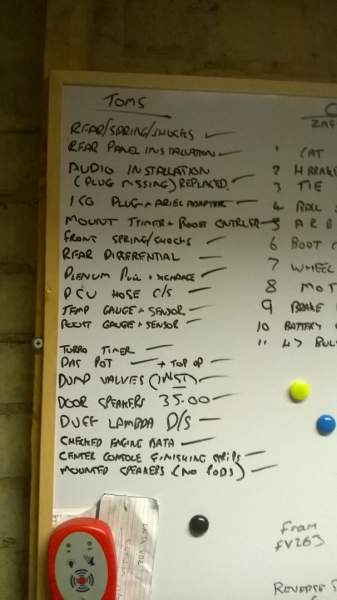 TOMS
REAR/SPRING/SHOCKS
REAR PANEL INSTALLATION
AUDIO INSTALLATION
(PLUG MISSING) REPLACED.
PLUG + ARIEL ADAPTER
MOUNT TIMER + BOOST CNTRLER
FRONT SPRING/SHOCKS
REAR DIFFERENTIAL
PLENUM
PCV HOSE C/S
TEMP GAUGE + SENSOR
BOOST GAUGE + SENSOR
TURBO TIMER
DAS POT → TOP OP
DUMP VALVIES (INST)
DOOR SPEAKERS 35.00
DUFF LAMBDA D/S
CHECKED ENGINE DATA
CENTER CONSOLE FINISHING STRIPS
MOUNTED SPEAKERS (NO PODS)
C
ZAF
1 CAT
2 H.BRAKE
3 TIE
4 ROLL
5 A R B
6 BOOT C
7 WHEEL
8 MOT
9 BRAKE
10 BATTERY
11 H7 BUL
From
FV263
REVERSE S